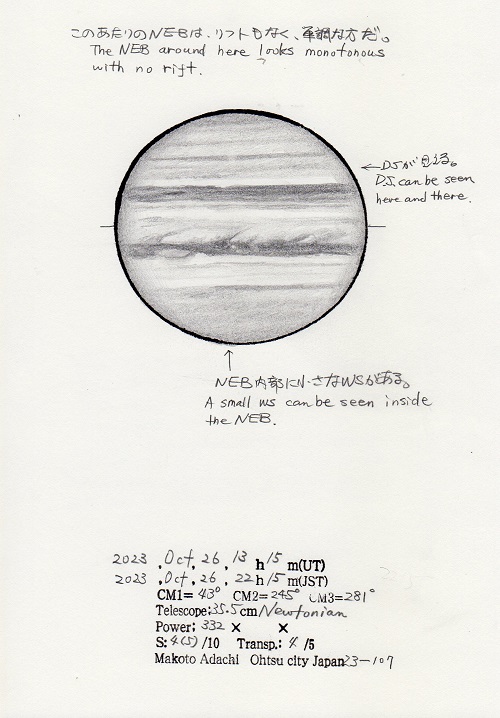 このあたりのNEBは、リフトもなく、単調な方だ。
The NEB around here looks monotonous
with no rift.
←DSが見える。
DS. can be seen
here and there.
↑
NEB内部に小さなWSがある。
A small WS can be seen inside
the NEB.
2023 ,Oct, 26 , 13 h 15 m(UT)
2023 ,Oct, 26 , 22 h 15 m(JST)
CM1= 43° CM2= 245° CM3= 281°
Telescope: 35.5cm Newtonian
Power: 332 × ×
S: 4(5) /10 Transp.: 4 /5
Makoto Adachi Ohtsu city Japan 23-107